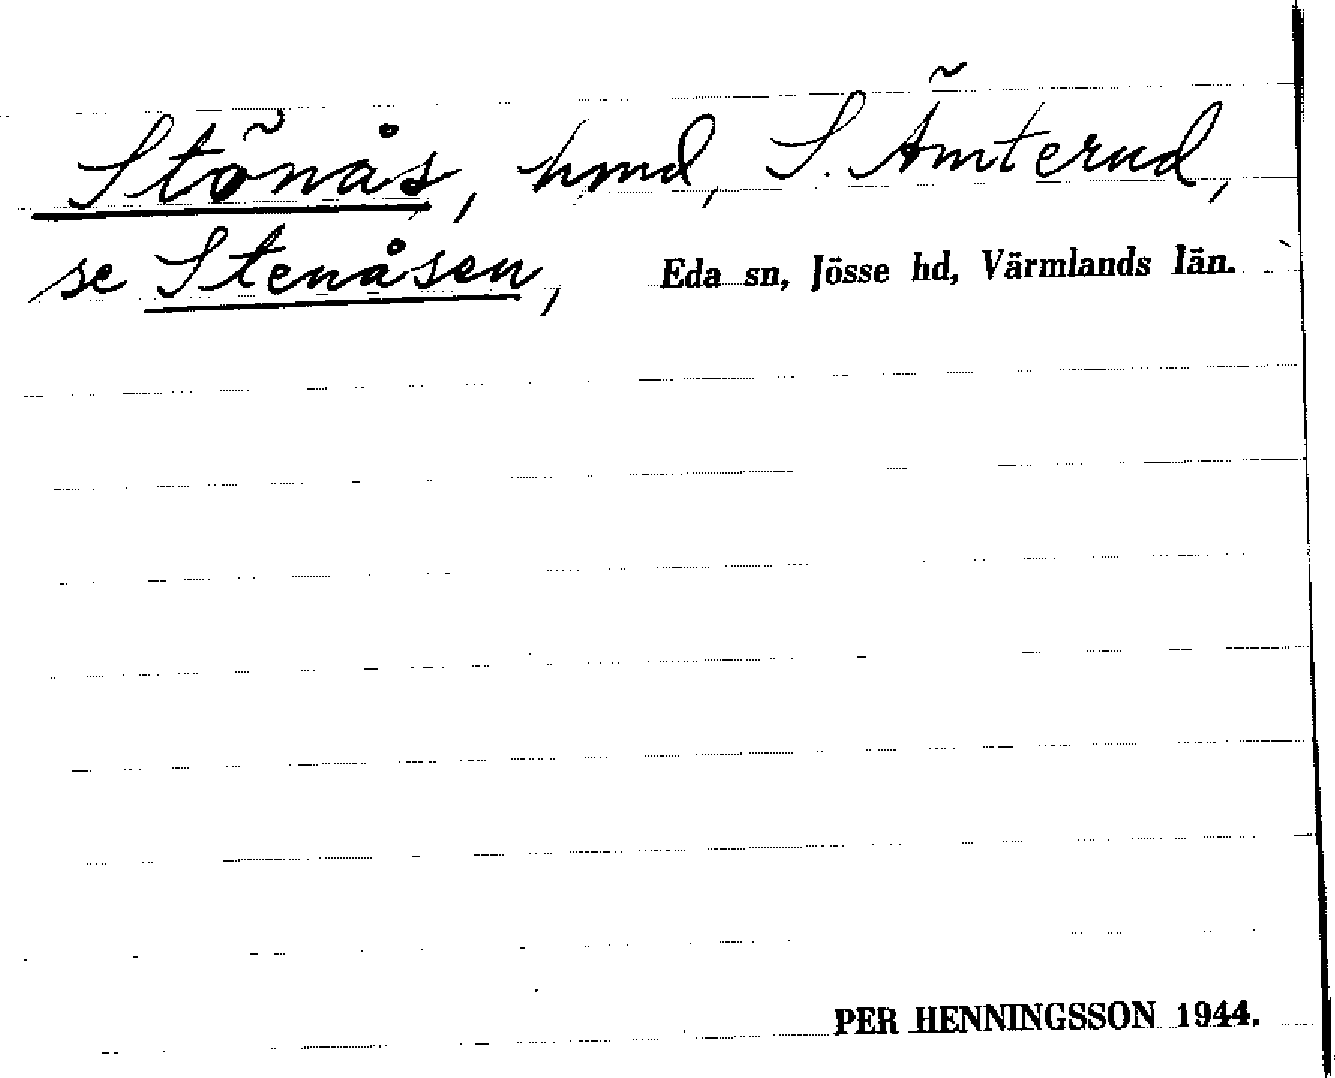 Stõnås, hmd, S. Ämterud,
se Stenåsen, Eda sn, Jösse hd, Värmlands län.
PER HENNINGSSON 1944.